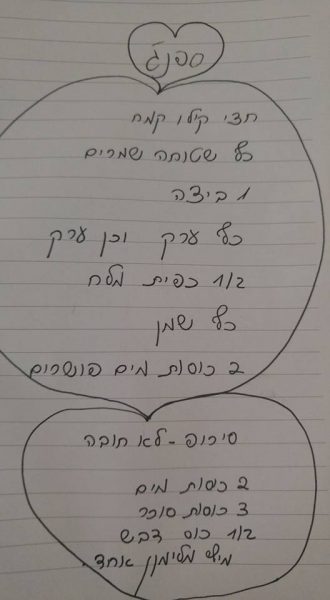 ספנג'
חצי קילו קמח
כף שטוחה שמרים
1 ביצה
כף ערק וכן ערק
1/2 כפית מלח
כף שמן
2 כוסות מים פושרים
סירופ - לא חובה
2 כוסות מים
3 כוסות סוכר
1/2 כוס דבש
מיץ מלימון אחד.